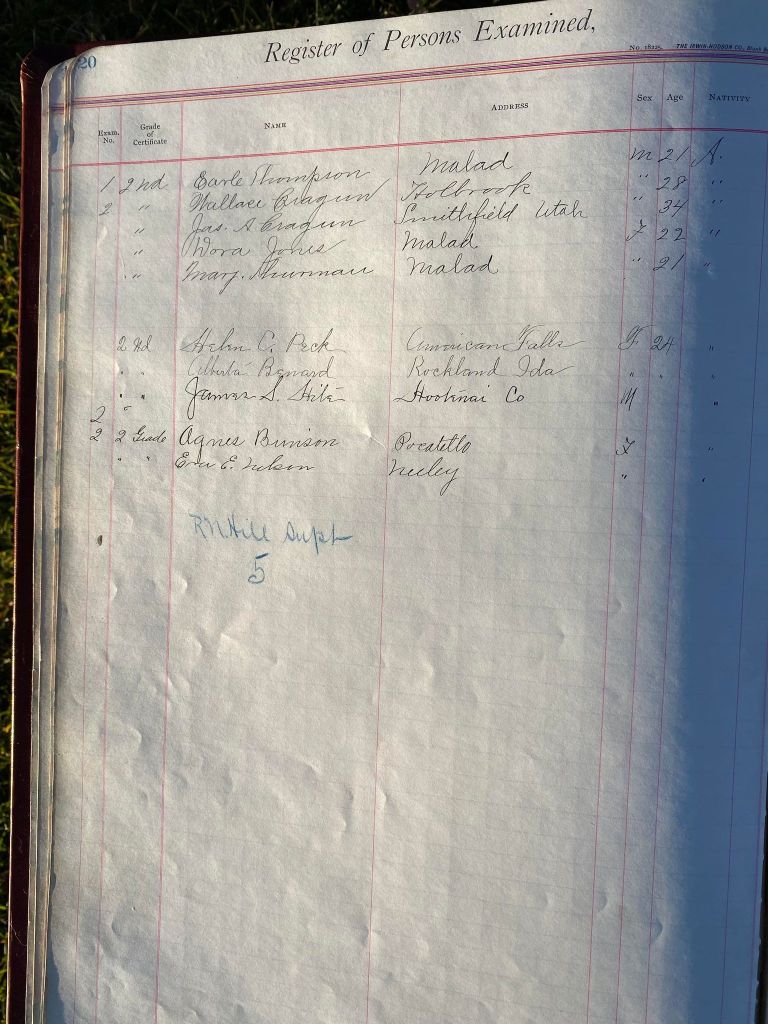 20
Register of Persons Examined,
No. 18225. THE IRWIN-HODSON CO.,
Exam. No. Grade of Certificate NAME ADDRESS SEX AGE NATIVITY
1 2nd Earle Thompson Malad M 21 A.
2 " Wallace Cragun Holbrook " 28 "
" Jas. A Cragun Smithfield Utah " 34 "
" Dora Jones Malad F 22 "
" Mary Thurman Malad " 21 "
2nd Helen C. Peck American Falls F 24 "
" " Alberta Benard Rockland Ida " " "
" " James S. Kootenai Co M "
2 "
2 2 Grade Agnes Pocatello F "
" " E. Nelson Neeley " "
R N Hill Supt
5